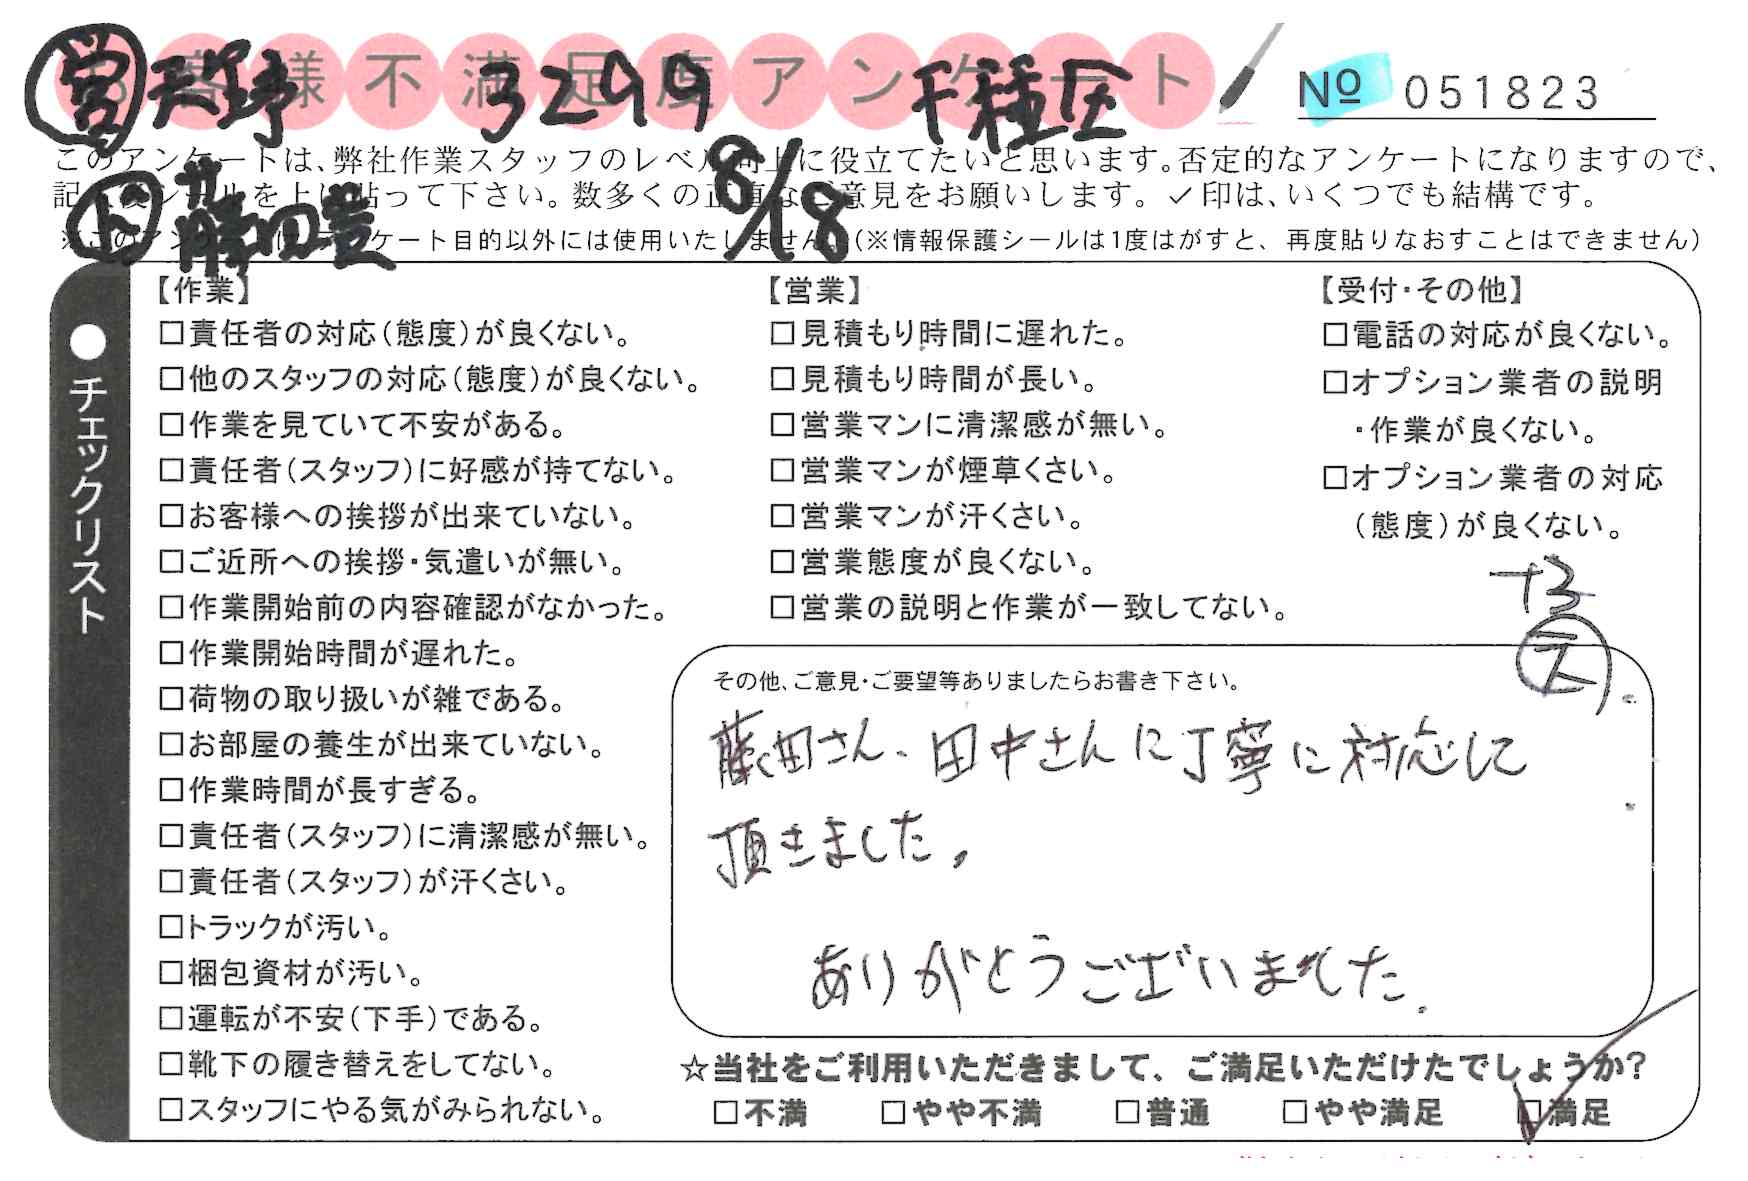 お客様不満足度アンケート
営 天野 3299 千種区
№ 051823
このアンケートは、弊社作業スタッフのレベル向上に役立てたいと思います。否定的なアンケートになりますので、
記入後シールを上に貼って下さい。数多くの正直なご意見をお願いします。✓印は、いくつでも結構です。
ト 藤田豊 8/18
※このアンケートはアンケート目的以外には使用いたしません。(※情報保護シールは1度はがすと、再度貼りなおすことはできません)
●チェックリスト
【作業】
□責任者の対応(態度)が良くない。
□他のスタッフの対応(態度)が良くない。
□作業を見ていて不安がある。
□責任者(スタッフ)に好感が持てない。
□お客様への挨拶が出来ていない。
□ご近所への挨拶・気遣いが無い。
□作業開始前の内容確認がなかった。
□作業開始時間が遅れた。
□荷物の取り扱いが雑である。
□お部屋の養生が出来ていない。
□作業時間が長すぎる。
□責任者(スタッフ)に清潔感が無い。
□責任者(スタッフ)が汗くさい。
□トラックが汚い。
□梱包資材が汚い。
□運転が不安(下手)である。
□靴下の履き替えをしてない。
□スタッフにやる気がみられない。
【営業】
□見積もり時間に遅れた。
□見積もり時間が長い。
□営業マンに清潔感が無い。
□営業マンが煙草くさい。
□営業マンが汗くさい。
□営業態度が良くない。
□営業の説明と作業が一致してない。
【受付・その他】
□電話の対応が良くない。
□オプション業者の説明
・作業が良くない。
□オプション業者の対応
(態度)が良くない。
+3
その他、ご意見・ご要望等ありましたらお書き下さい。
藤田さん、田中さんに丁寧に対応して
頂きました。
ありがとうございました。
☆当社をご利用いただきまして、ご満足いただけたでしょうか?
□不満 □やや不満 □普通 □やや満足 □満足